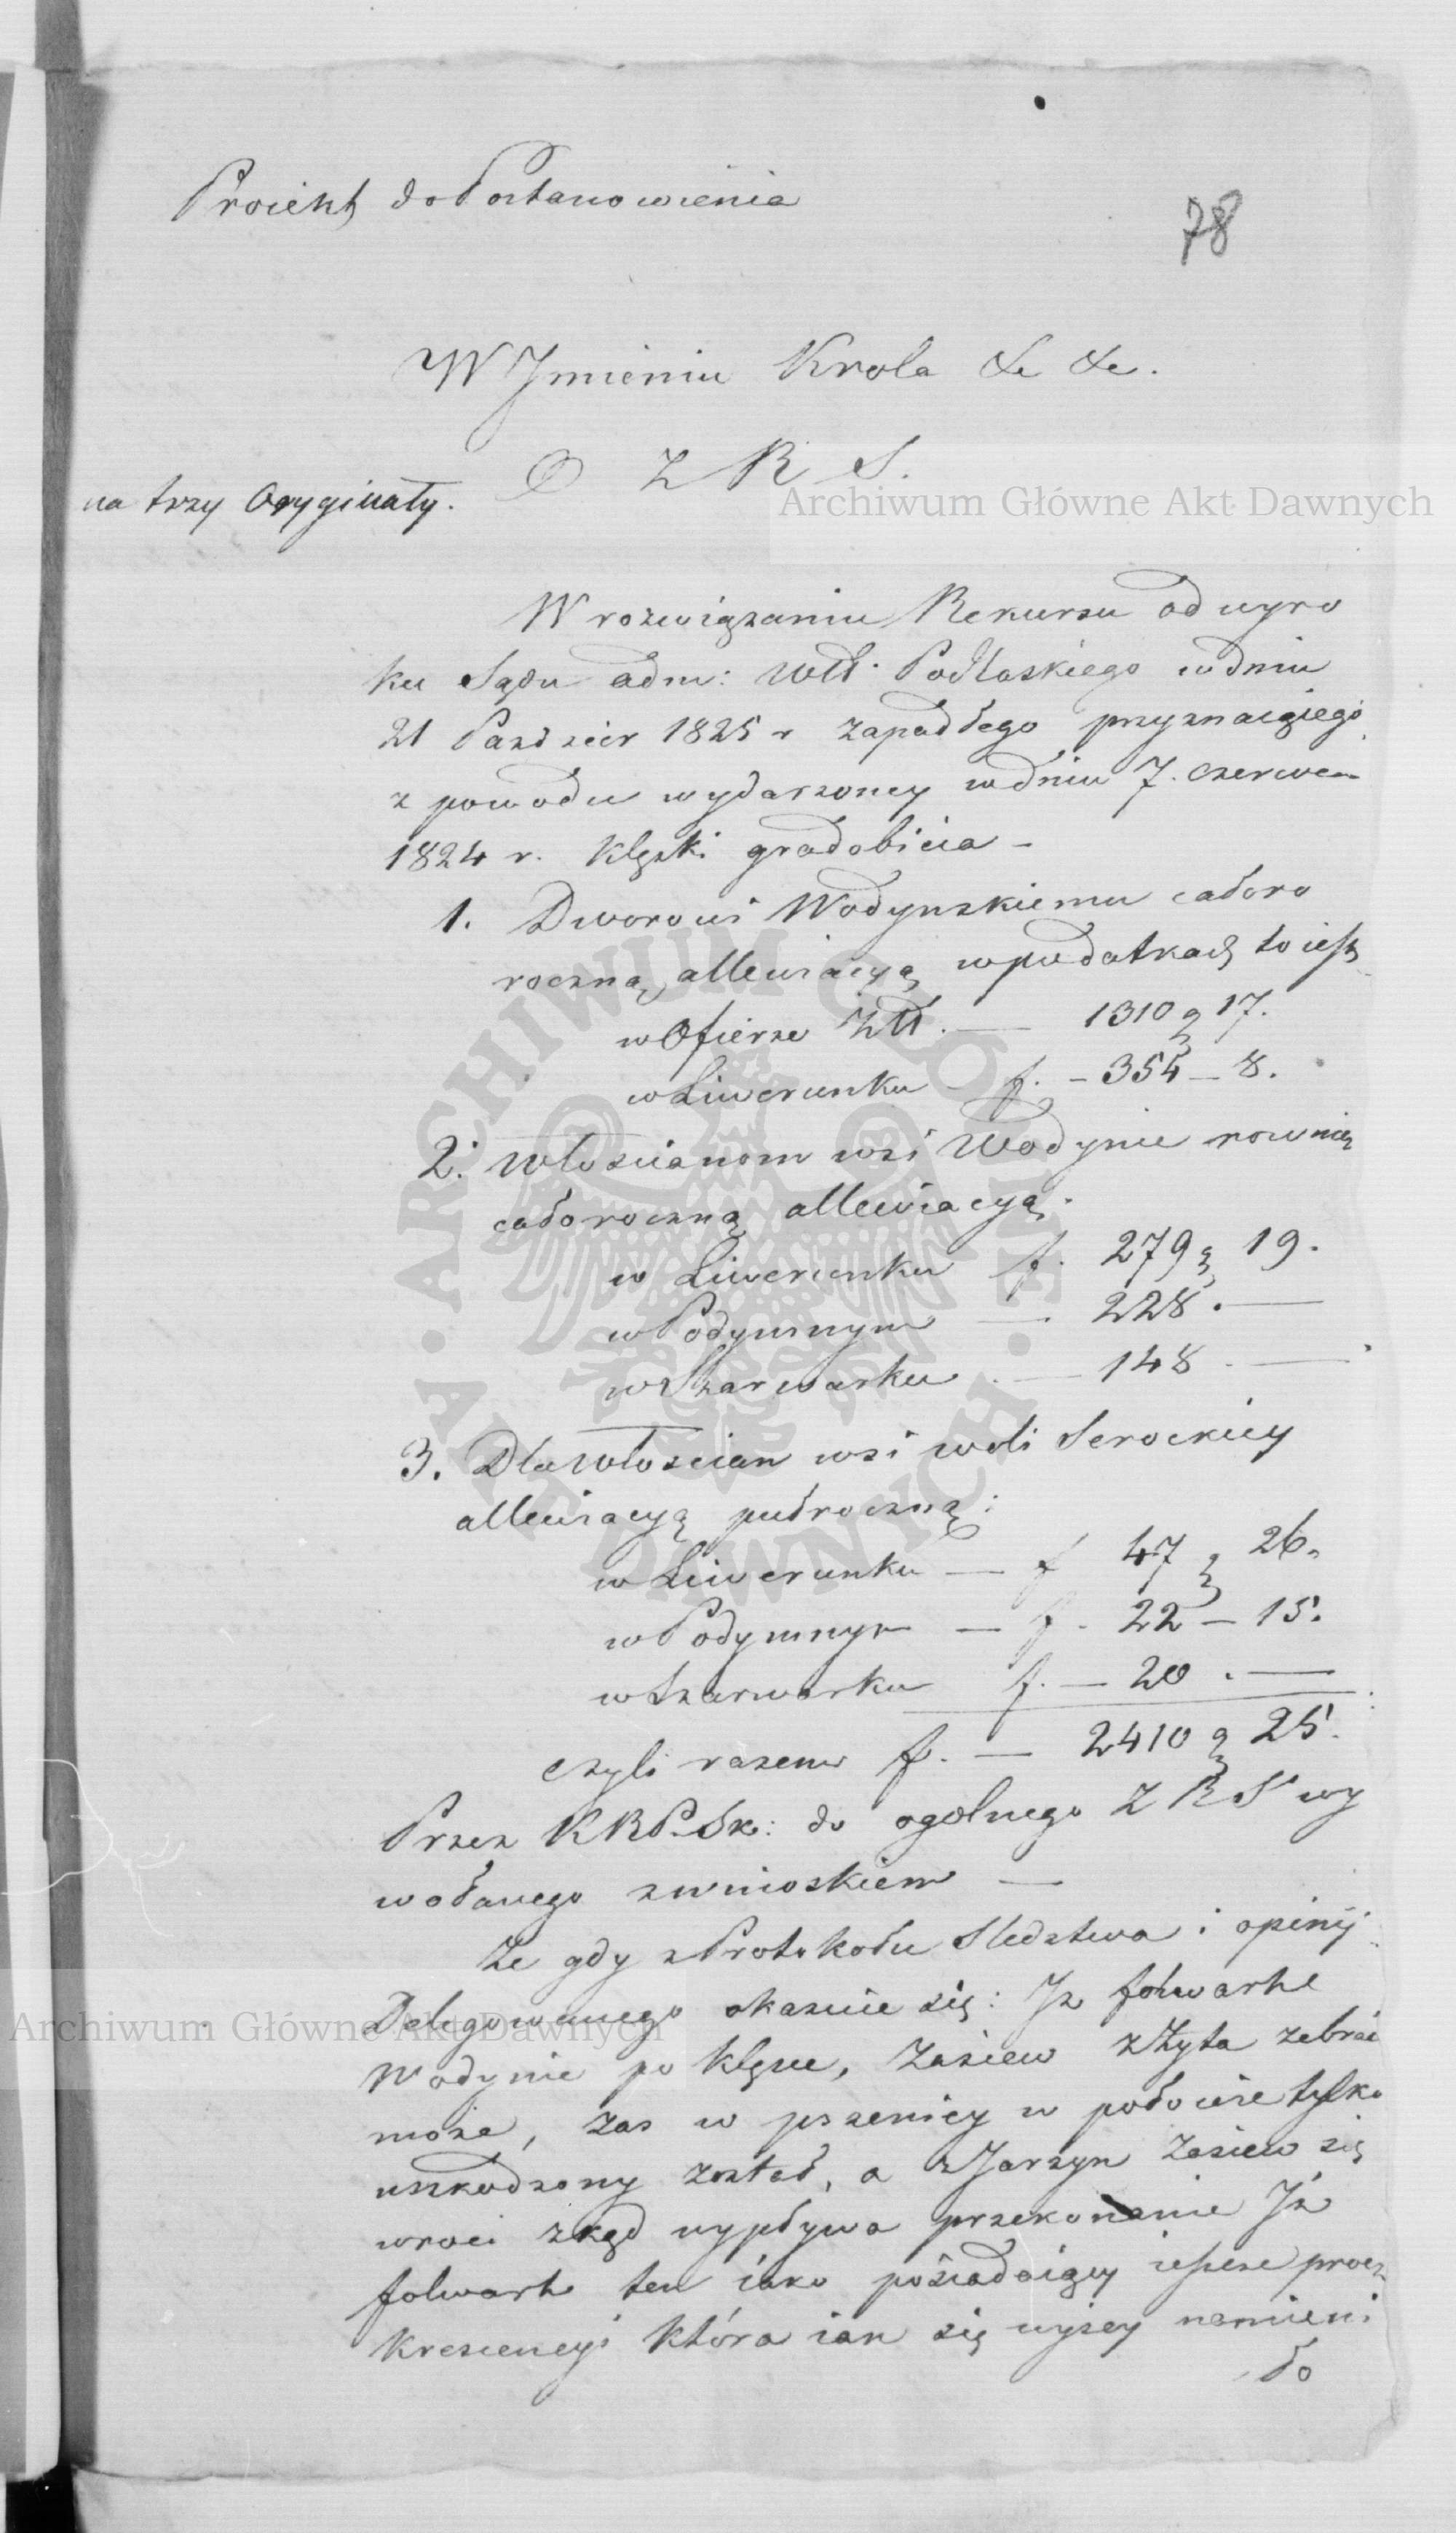 Proiekt do Postanowienia
78
W Jmieniu Krola &c &c.
D Z R S.
na trzy Oryginały.
Archiwum Główne Akt Dawnych
W rozwiązaniu Rekursu od wyro
ku Sądu adm: Wdt. Podlaskiego w dniu
21 Paździer 1825 r zapadłego przyznaiącego
z powodu wydarzoney w dniu 7. czerwca
1824 r. Klęski gradobicia -
1. Dworowi Wodynskiemu całoro
roczną allewiacyą w podatkach to iest
w Ofierze Złl. — 1310 g 17.
w Liwerunku f. - 354 - 8.
2. Włoscianom wsi Wodynie rownię
całoroczną allewiacyą.
w Liwerunku f. 279 g 19.
w Podymnym — 228. —
w Szarwarku — 148. —
3. Dla Włoscian wsi woli Serockiey
allewiacyą pułroczną:
w Liwerunku — f 47 g 26.
w Podymnym — f. 22 - 15.
w Szarwarku f. — 20. —
czyli razem f. — 2410 g 25.
Przez KRPSk: do ogolnego Z R S wy
wołanego z wnioskiem —
Ze gdy z Protokołu Sledztwa i opinij
Delegowanego okazuie się: Jz folwarke
Archiwum Główne Akt Dawnych
Wodynie po Klęsce, Zasiew z Żyta zebrać
może, zas w pszenicy w połowie tylko
uszkodzony został, a z Jarzyn Zasiew się
wroci zkąd wypływa przekonanie Jż
folwark ten iako posiadaiący ieszcze procz
krescencyi która iak się wyżey namieni
ło
ARCHIWUM GŁÓWNE · AKT DAWNYCH ·